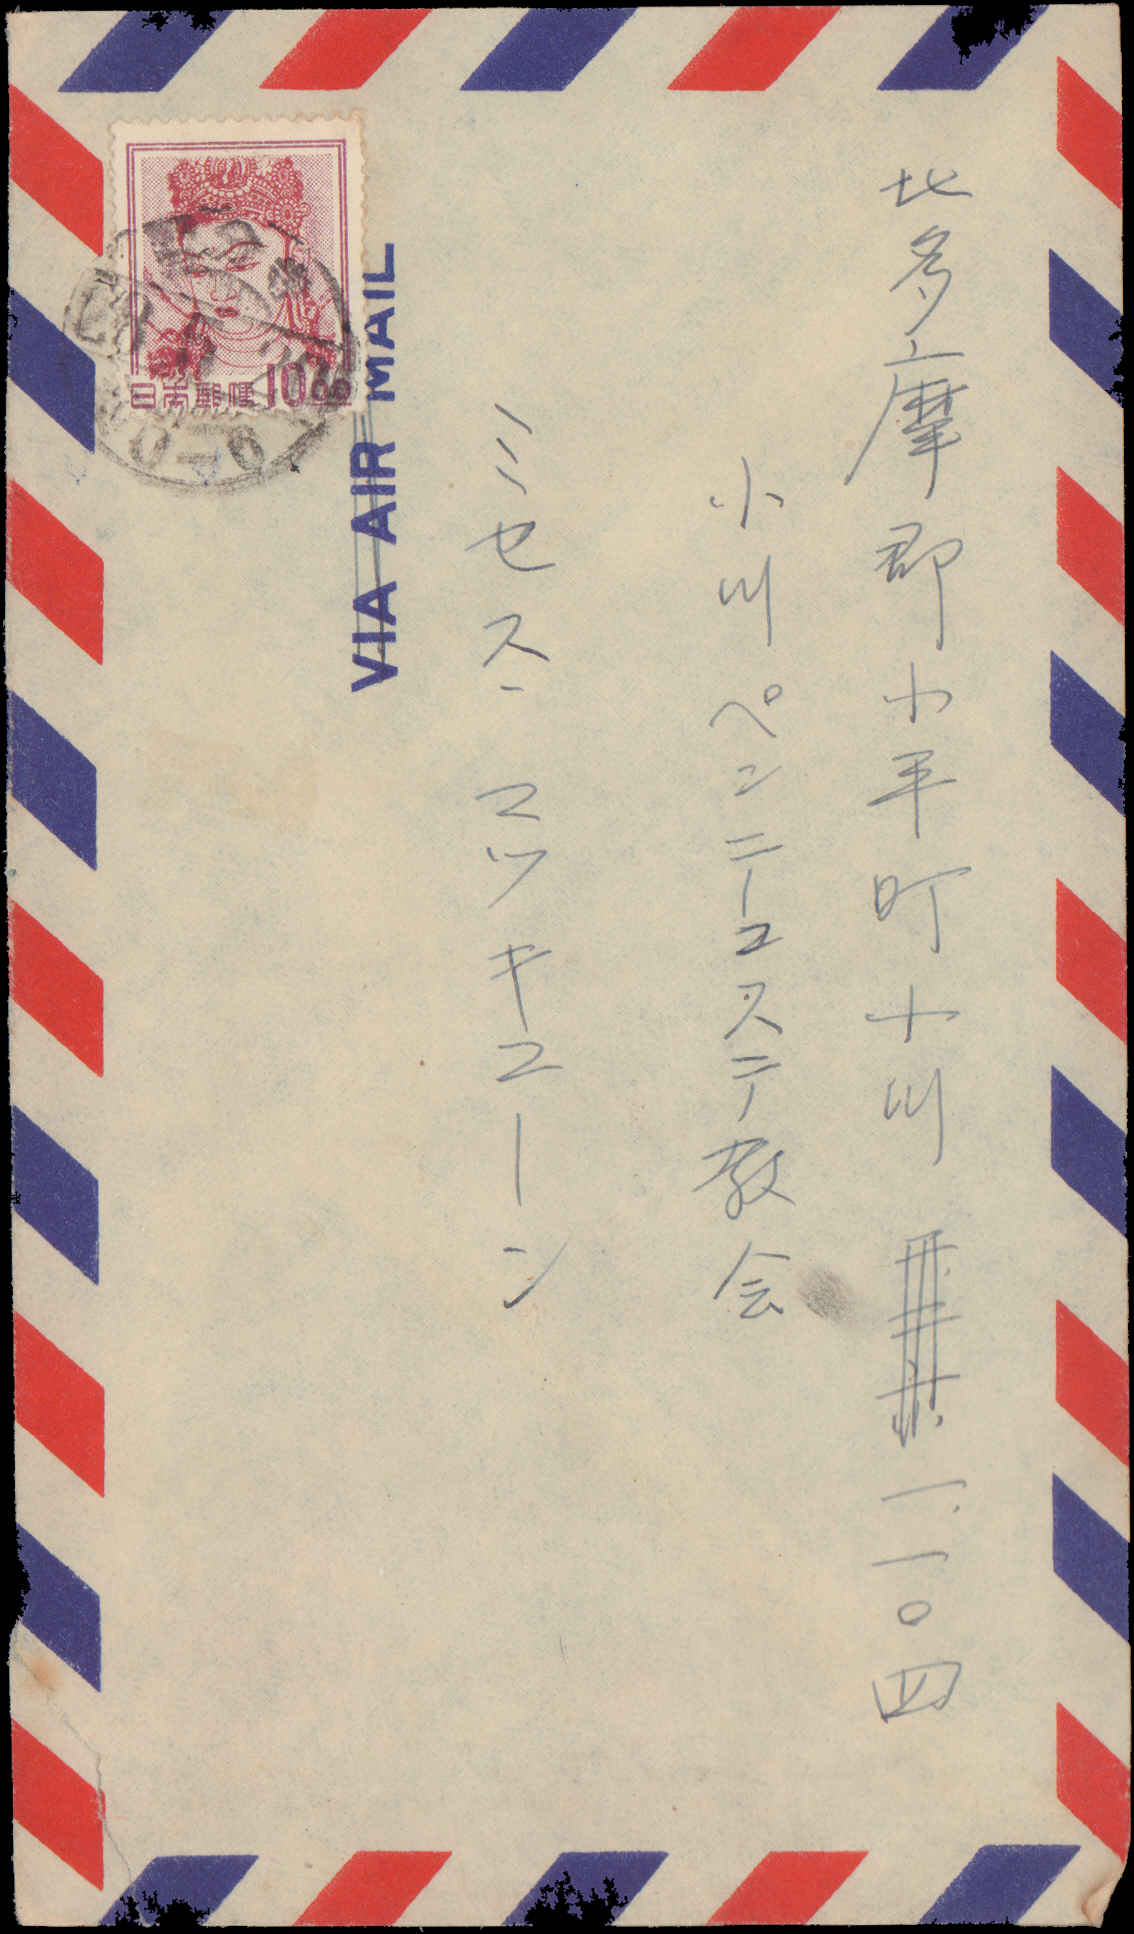 北多摩郡小平町小川 一一〇四
小川ペンニーコステ教会
ミセス、マッキューン
VIA AIR MAIL
日本郵便 10.00